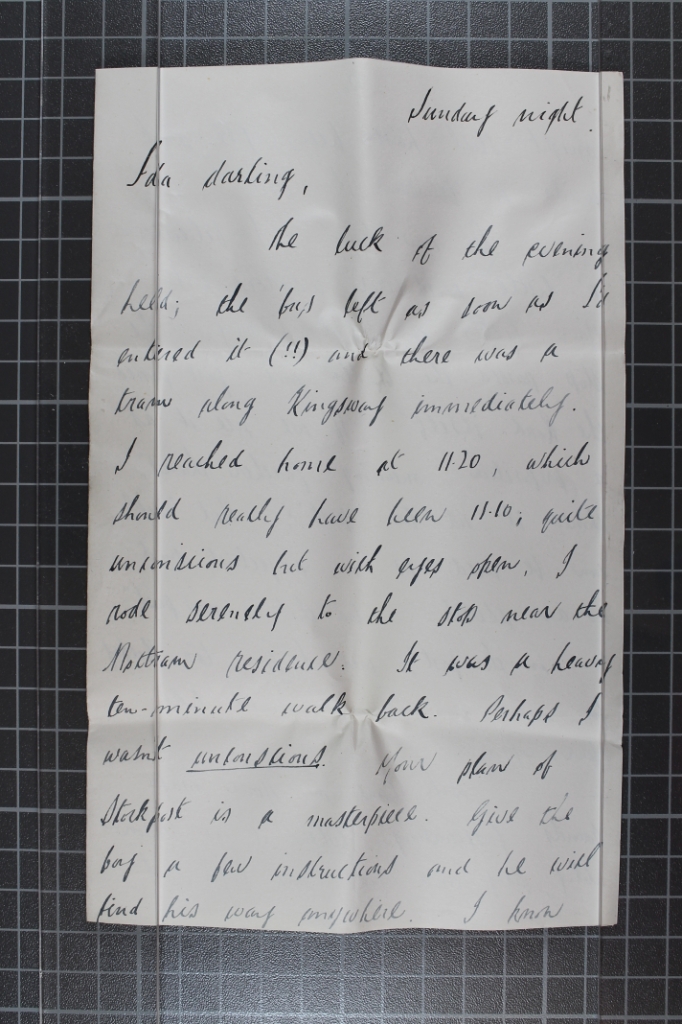 Sunday night.
Ida darling,
The luck of the evening
held; the 'bus left as soon as I'd
entered it (!!) and there was a
tram along Kingsway immediately.
I reached home at 11.20, which
should really have been 11.10; quite
unconscious but with eyes open, I
rode serenely to the stop near the
Mottram residence. It was a heavy
ten-minute walk back. Perhaps I
wasn't unconscious. Your plan of
Stockport is a masterpiece. Give the
boy a few instructions and he will
find his way anywhere. I know